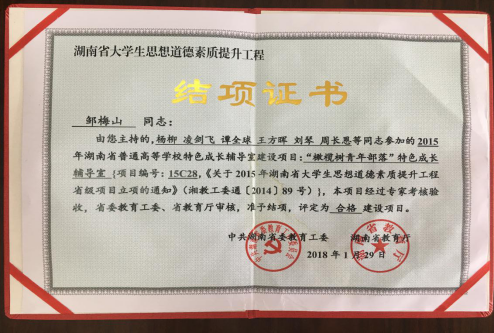 湖南省大学生思想道德素质提升工程
结项证书
邹梅山 同志：
由您主持的，杨柳 凌剑飞 谭全球 王方晖 刘琴 周长恩等同志参加的2015
年湖南省普通高等学校特色成长辅导室建设项目：“橄榄树青年部落”特色成长
辅导室{项目编号：15C28,《关于2015年湖南省大学生思想道德素质提升工程
省级项目立项的通知》（湘教工委通〔2014〕89号）}，本项目经过专家考核验
收，省委教育工委、省教育厅审核，准予结项，评定为 合格 建设项目。
中共湖南省委教育工委 湖南省教育厅
2018年1月29日